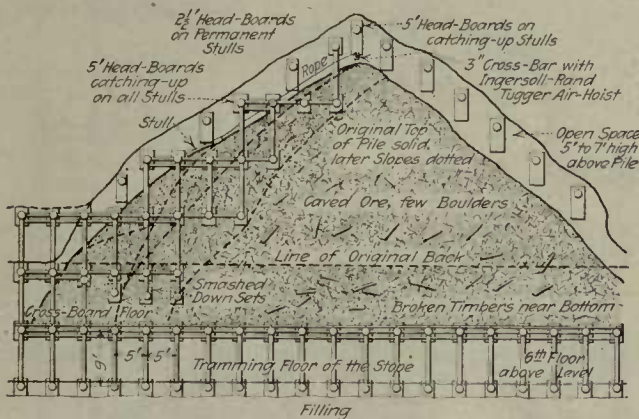 2½" Head-Boards
on Permanent
Stulls
5' Head-Boards on
catching-up Stulls
5' Head-Boards
catching-up
on all Stulls
Rope
3" Cross-Bar with
Ingersoll-Rand
Tugger Air-Hoist
Stull
Original Top
of Pile solid,
later Slopes dotted
Open Space
5' to 7' high
above Pile
Caved Ore, few Boulders
Line of Original Back
Smashed
Down Sets
Cross-Board Floor
Broken Timbers near Bottom
9'
5' 5'
Tramming Floor of the Stope
6th Floor
above Level
Filling